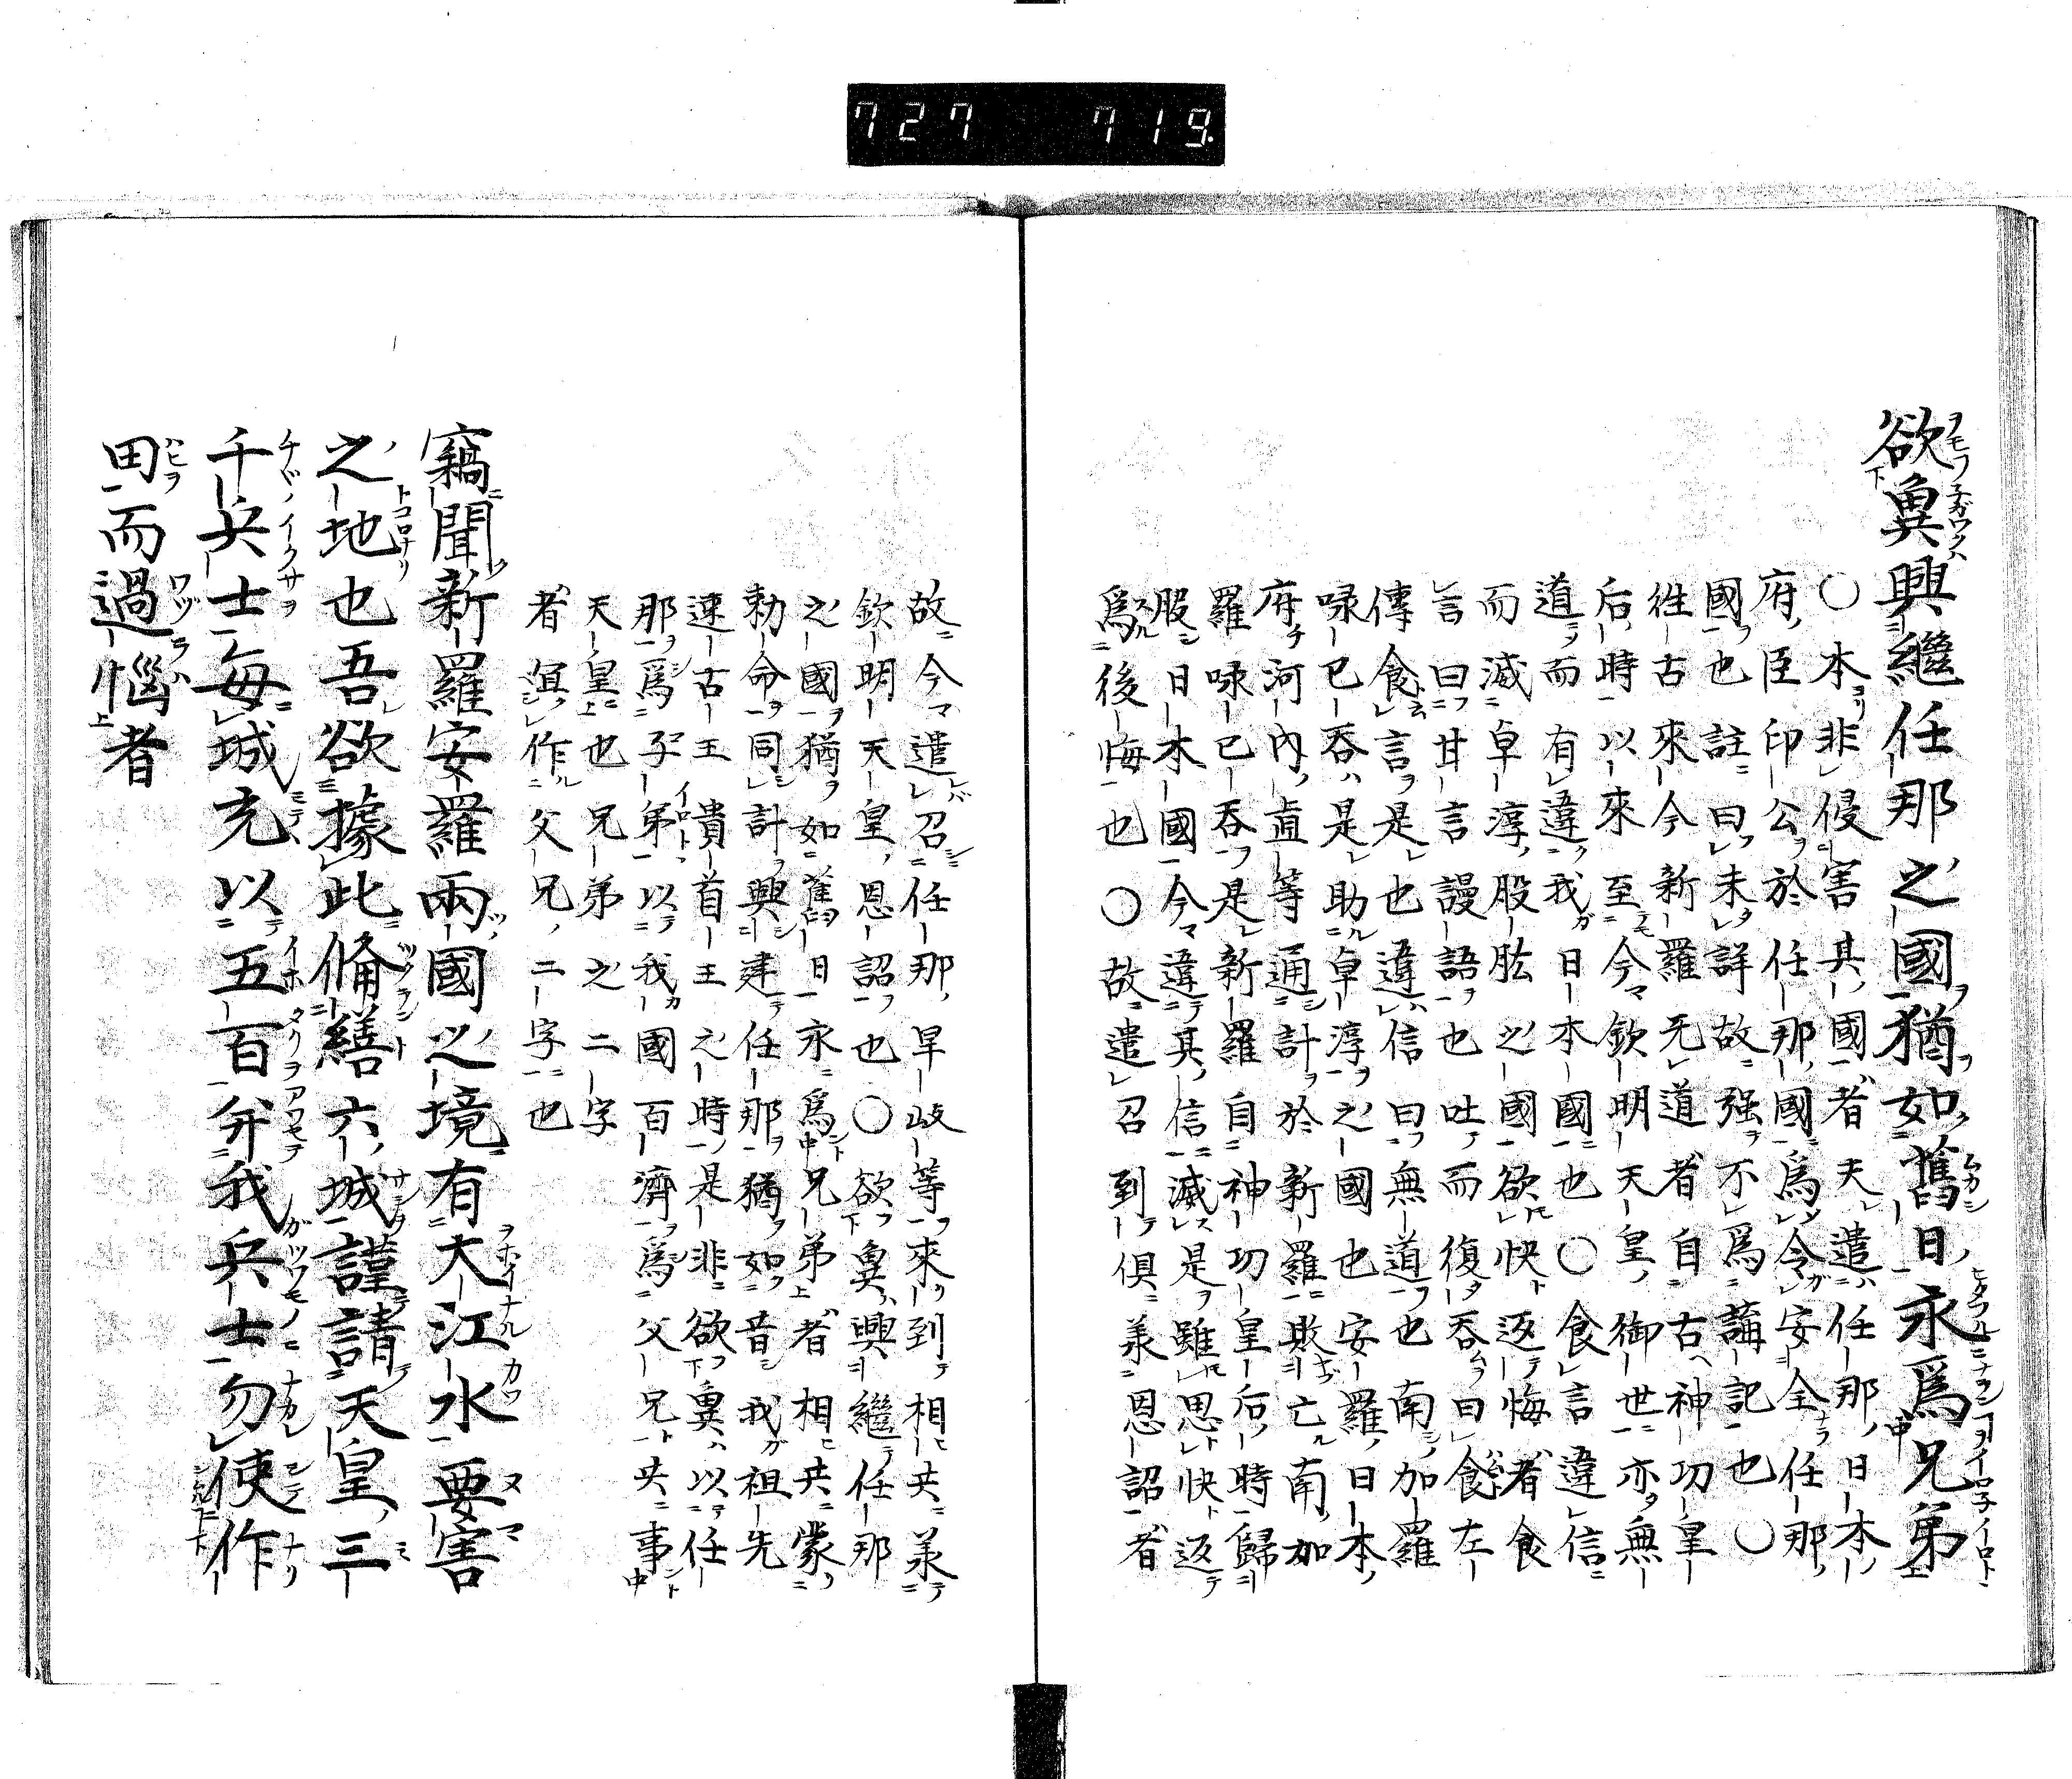 727 719
欲冀興繼任那之國猶如舊日永爲兄弟
○本非侵害其國者夫遣任那日本
府臣印公於任那國爲令安全任那
國也註曰未詳故强不爲講記也○
徃古來今新羅无道者自古神功皇
后時以來至今欽明天皇御世亦無
道而有違我日本國也○食言違信
而滅卓淳股肱之國欲快返悔者食
言曰甘言謾語也吐而復吞曰食左
傳食言是也違信曰無道也南加羅
㖨已吞是助卓淳之國也安羅日本
府河內直等通計於新羅敗亡南加
羅㖨己吞是新羅自神功皇后時歸
服日本國今違其信滅是雖思快返
爲後悔也○故遣召到俱羕恩詔者
故今遣召任那旱岐等來到相共羕
欽明天皇恩詔也○欲冀興繼任那
之國猶如舊日永爲兄弟者相共蒙
勅命同計興建任那猶如昔我祖先
速古王貴首王之時是非欲冀以任
那爲子弟以我國百濟爲父兄共事
天皇也兄弟之二字
者誤作父兄二字也
竊聞新羅安羅兩國之境有大江水要害
之地也吾欲據此脩繕六城謹請天皇三
千兵士每城充以五百幷我兵士勿使作
田而過惱者